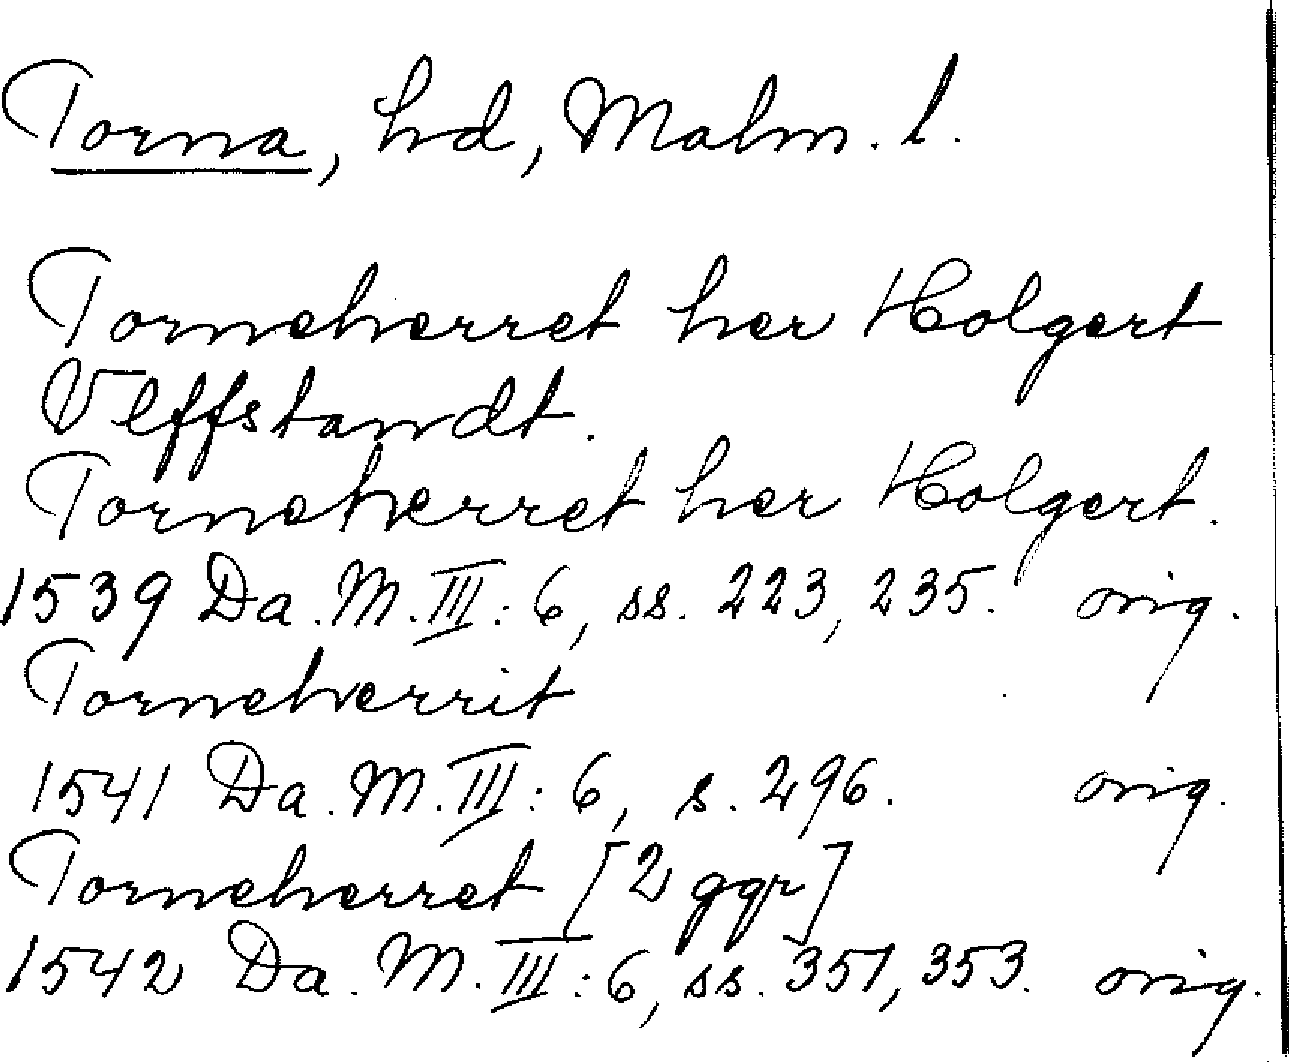 Torna, hd, Malm. l.
Torneherret her Holgert
Vlffstandt.
Torneherret her Holgert.
1539 Da. M. III: 6, ss. 223, 235. orig.
Torneherrit
1541 Da. M. III: 6, s. 296. orig.
Torneherret [2 ggr]
1542 Da. M. III: 6, ss. 351, 353. orig.